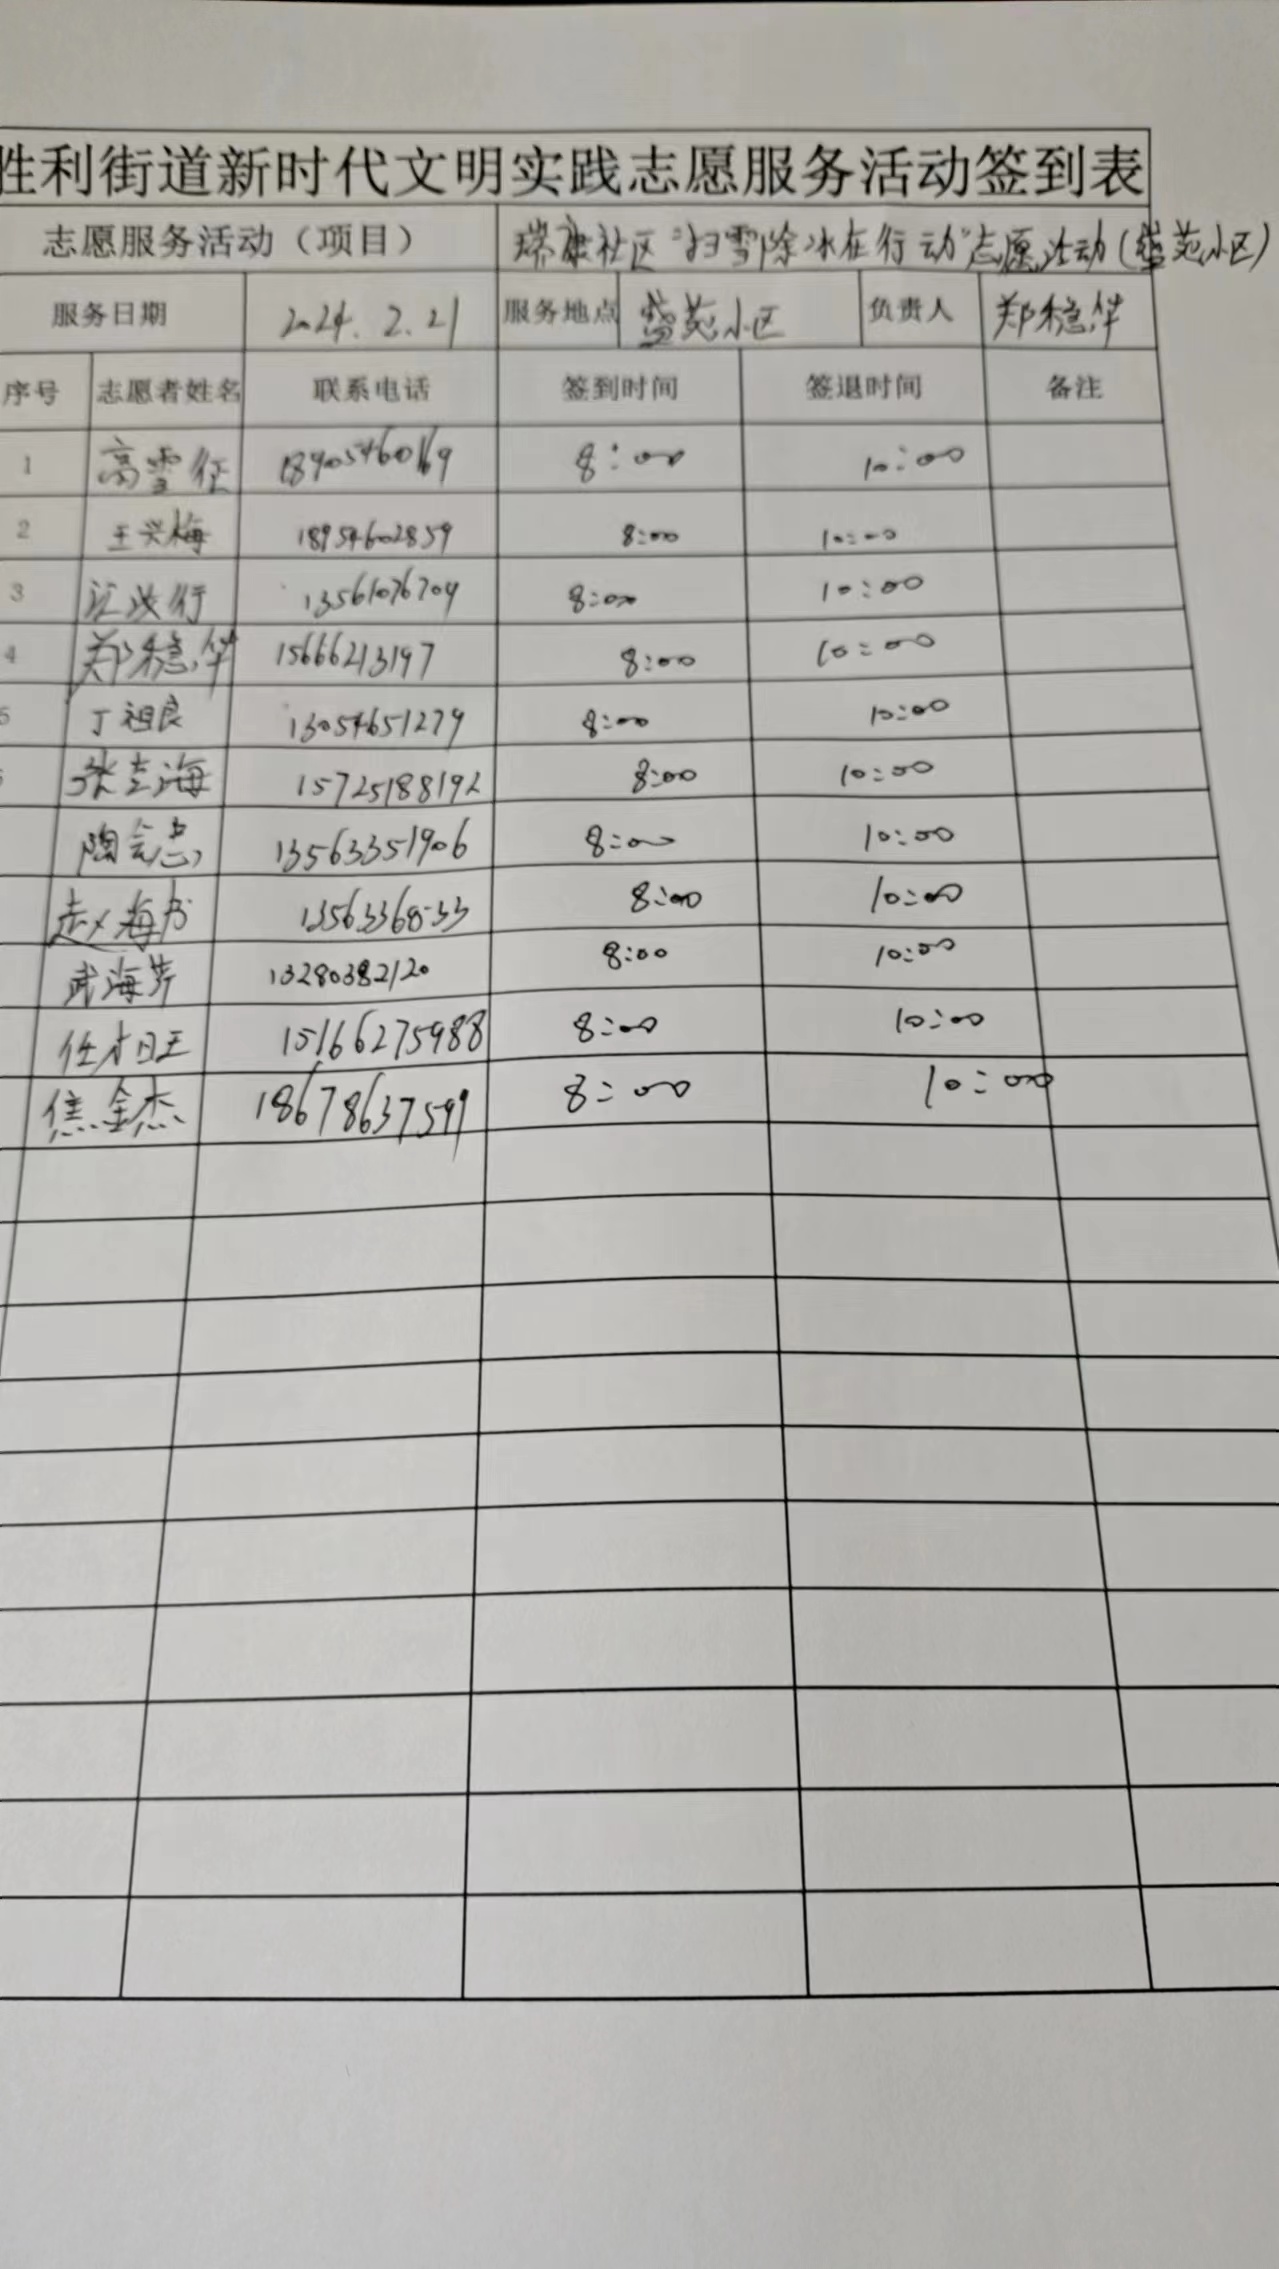 胜利街道新时代文明实践志愿服务活动签到表
志愿服务活动（项目） 瑞康社区"扫雪除冰在行动"志愿活动(盛苑小区)
服务日期 2024.2.21 服务地点 盛苑小区 负责人 郑稳华
序号 志愿者姓名 联系电话 签到时间 签退时间 备注
1 高雪征 18905460169 8:00 10:00
2 王兴梅 18954602859 8:00 10:00
3 13561076704 8:00 10:00
4 郑稳华 15666213197 8:00 10:00
5 丁祖良 13054651279 8:00 10:00
张志海 15725188192 8:00 10:00
陶会忠 13563351906 8:00 10:00
赵海书 8:00 10:00
武海芹 13280382120 8:00 10:00
任 15166275988 8:00 10:00
焦金杰 18678637599 8:00 10:00